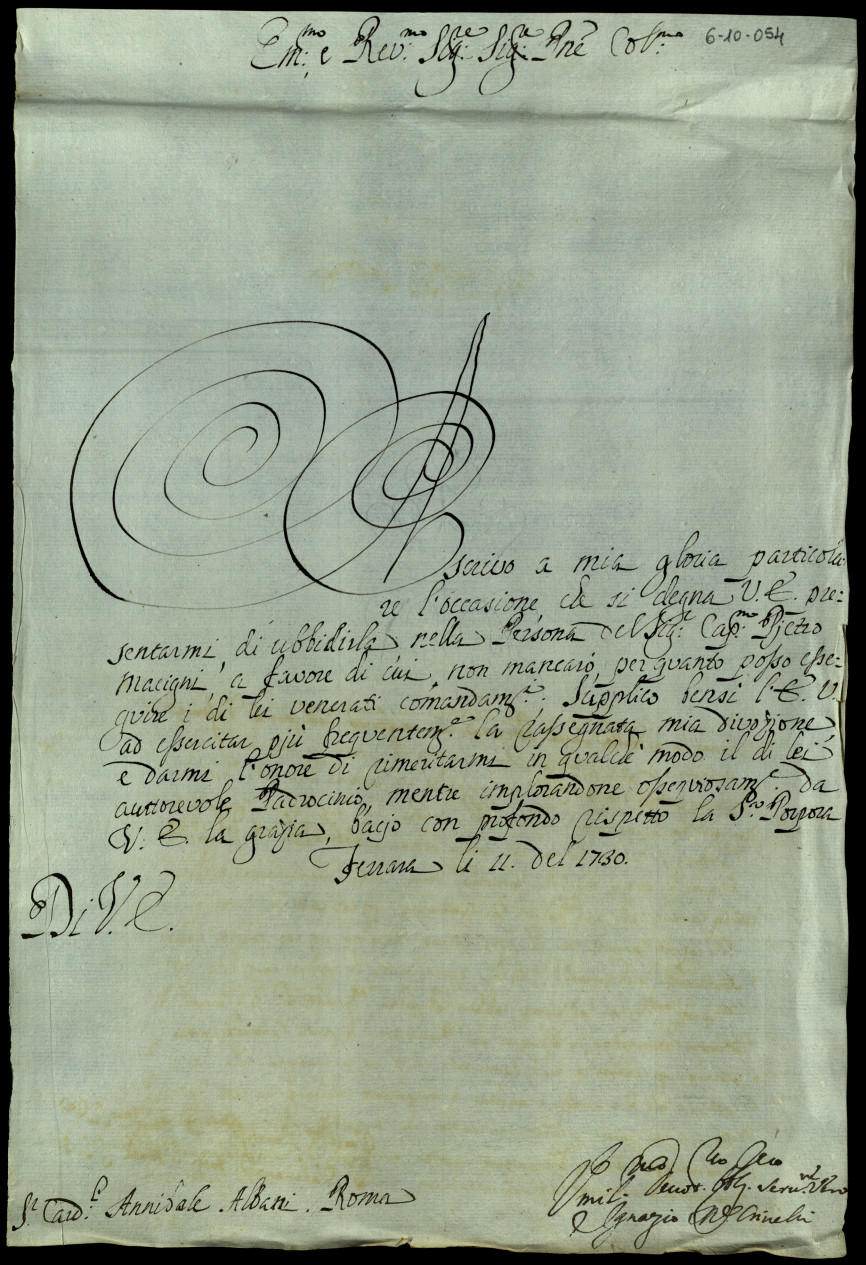 Em:mo e Rev:mo Sig:re Sig:re Pne Col:mo
6-10-054
Ascrivo a mia gloria particola:
re l'occasione, che si degna V. E. pre:
sentarmi, di ubbidirla nella Persona del Sig:r Cap:no Pietro
Macigni, a favore di cui non mancarò, per quanto posso esse:
quire i di lei venerati comandam:ti. Supplico bensì l'E. V.
ad essercitar più frequentem:e la rassegnata mia divozione
e darmi l'onore di rimeritarmi in qualche modo il di lei
auttorevole Padrocinio, mentre implorandone ossequiosam:e da
V. E. la grazia, bacio con profondo rispetto la S:ra Porpora
Ferrara li 11. del 1730.
Di V. E.
S:r Card:l Annibale Albani. Roma
Umil: Devot: Obb: Serv:re
Ignazio